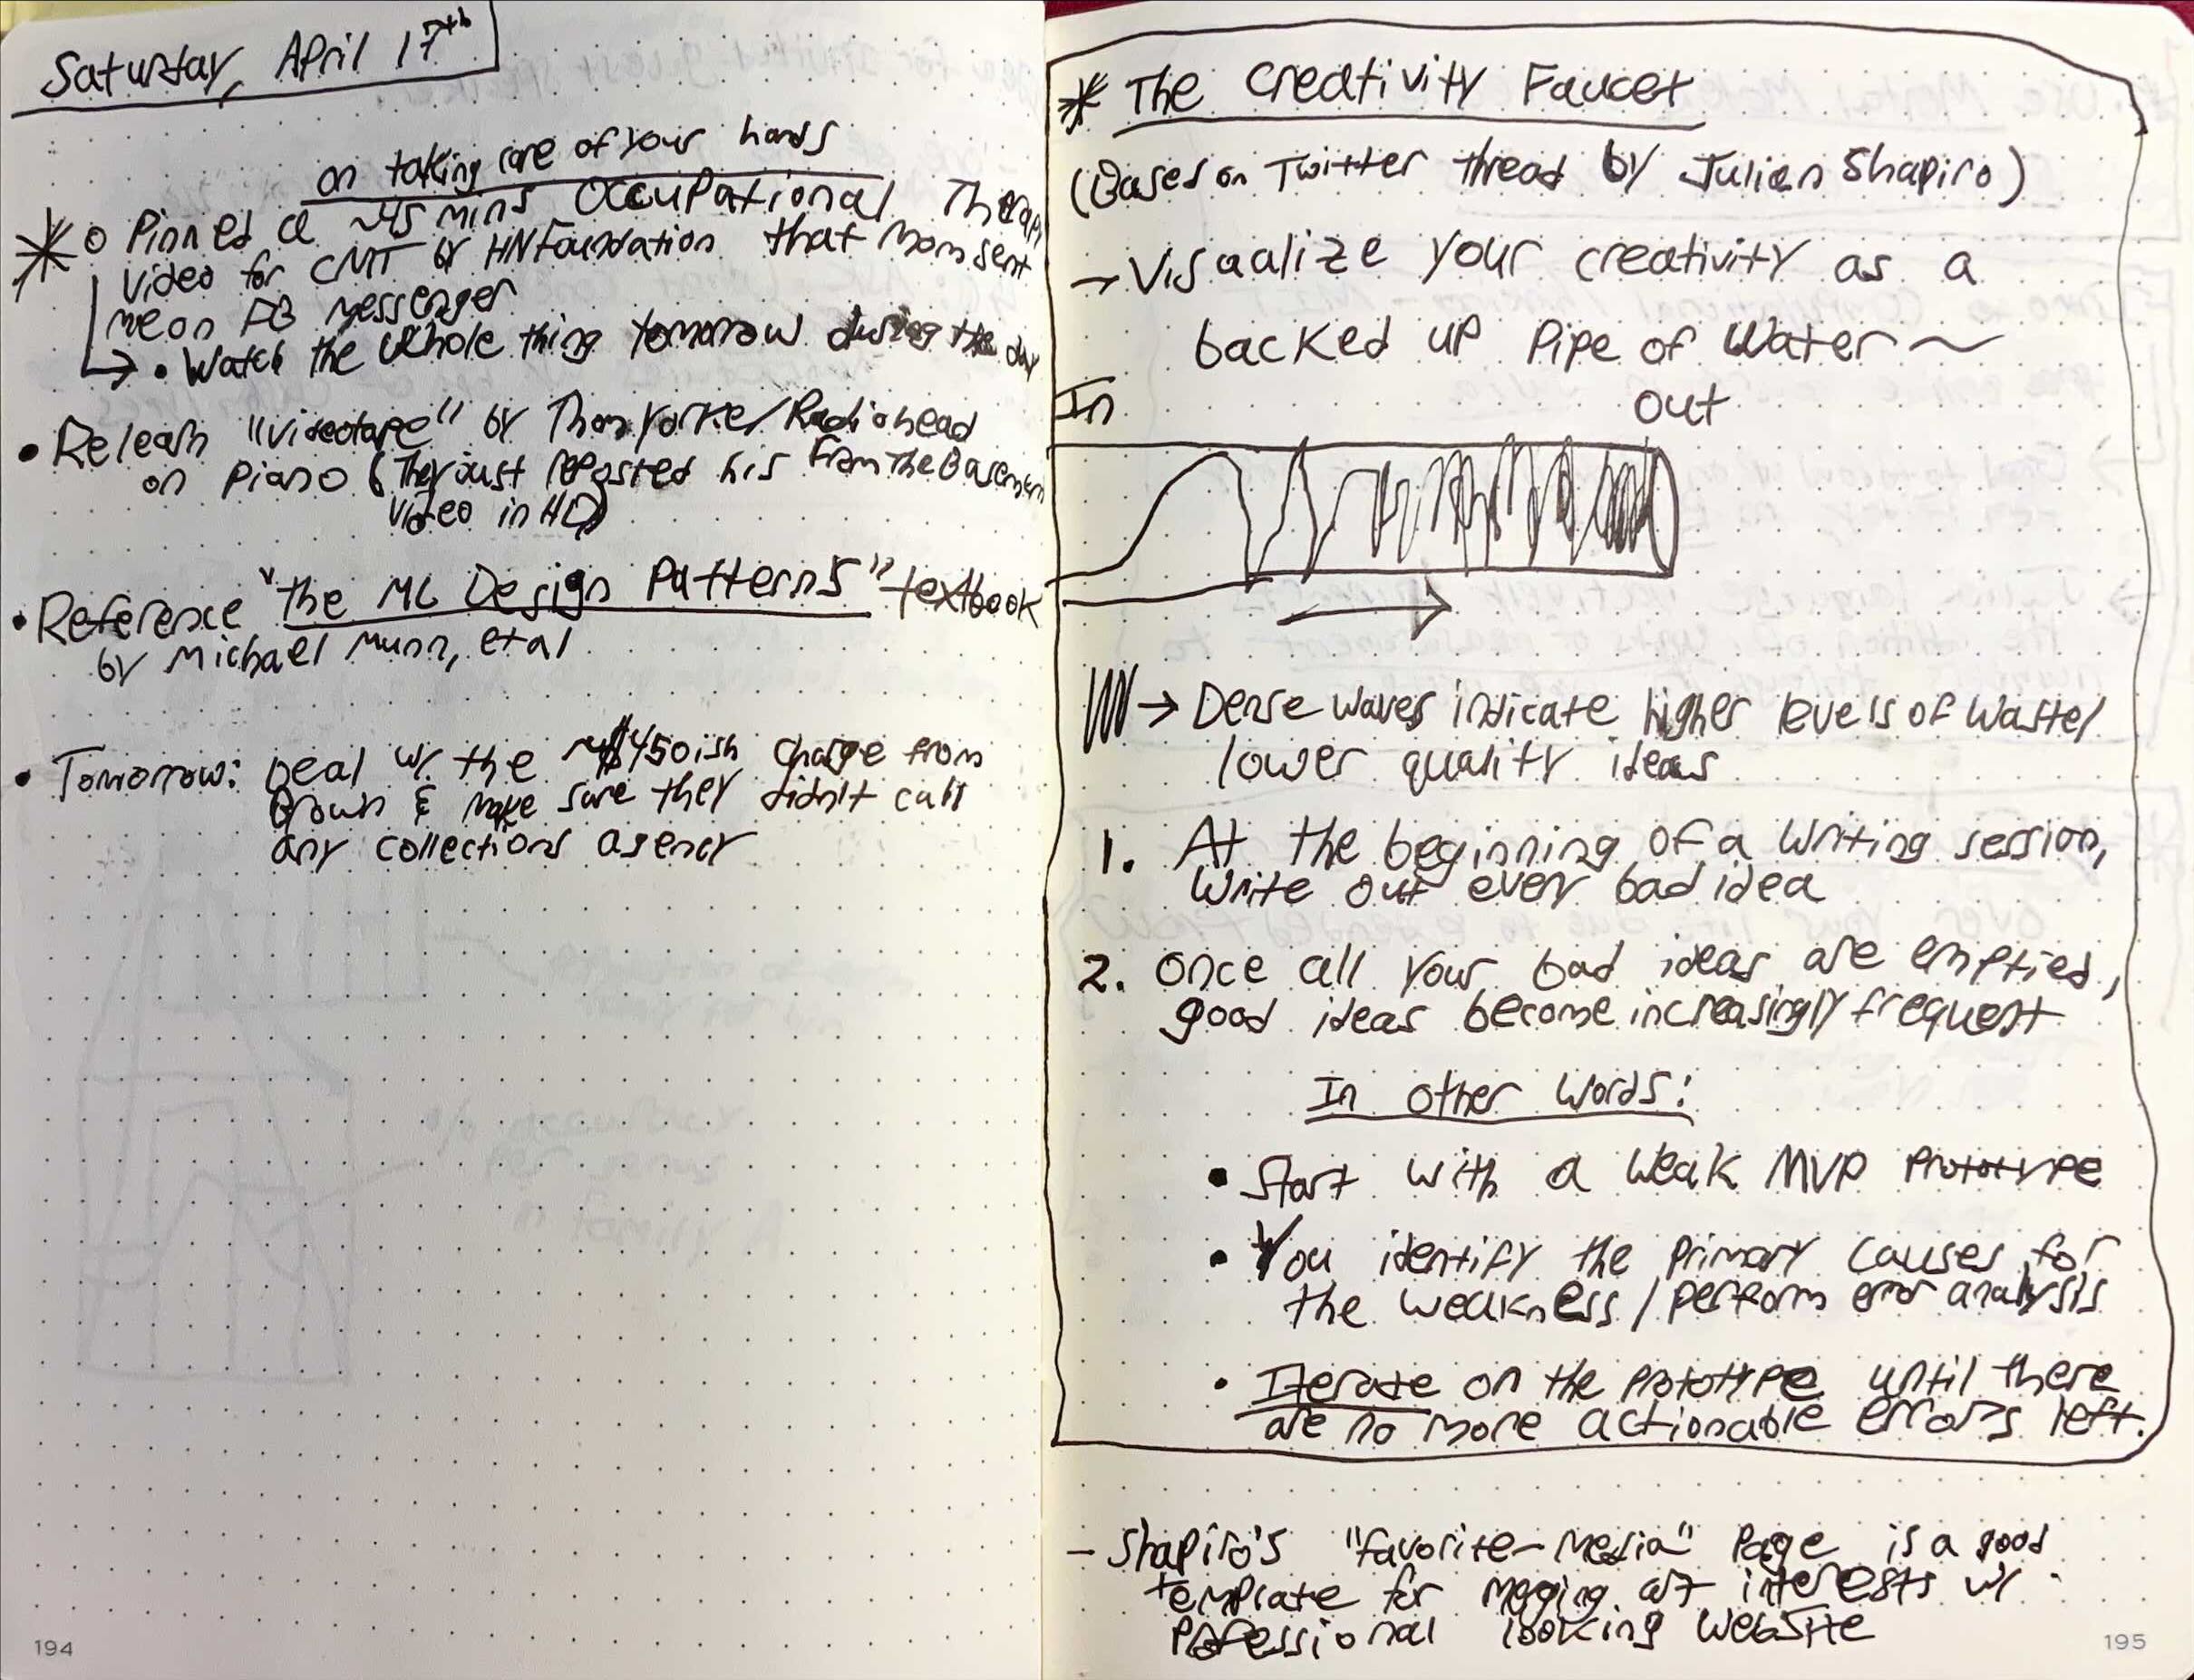 Saturday, April 17th
on taking care of your hands
* o Pinned a ~45 mins Occupational Therapy
video for CMT by HNFoundation that Mom sent
me on FB Messenger
→ • Watch the whole thing tomorrow during the day
• Relearn "Videotape" by Thom Yorke/Radiohead
on piano (They just reposted his From The Basement
video in HD)
• Reference "the ML Design Patterns" textbook
by Michael Munn, et al
• Tomorrow: Deal w/ the ~$450ish charge from
Brown & make sure they didn't call
any collections agency
194
* The Creativity Faucet
(Based on Twitter thread by Julian Shapiro)
→ Visualize your creativity as a
backed up pipe of water ~
In
out
→ Dense waves indicate higher levels of waste/
lower quality ideas
1. At the beginning of a writing session,
write out every bad idea
2. Once all your bad ideas are emptied,
good ideas become increasingly frequent
In other words:
• Start with a weak MVP prototype
• You identify the primary causes for
the weakness / perform error analysis
• Iterate on the prototype until there
are no more actionable errors left.
- Shapiro's "favorite-media" page is a good
template for merging art interests w/
professional looking website
195